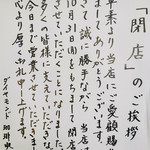 「閉店」のご挨拶
平素より当店にご愛顧賜り
ましてありがとうございます。
誠に勝手ながら 当店は
10月31日(日)をもちまして閉店
させていただくことになりました。
多くの皆様に支えていただき、
今日まで営業させていただきまして
心より厚く御礼申し上げます。
ダイヤモンド